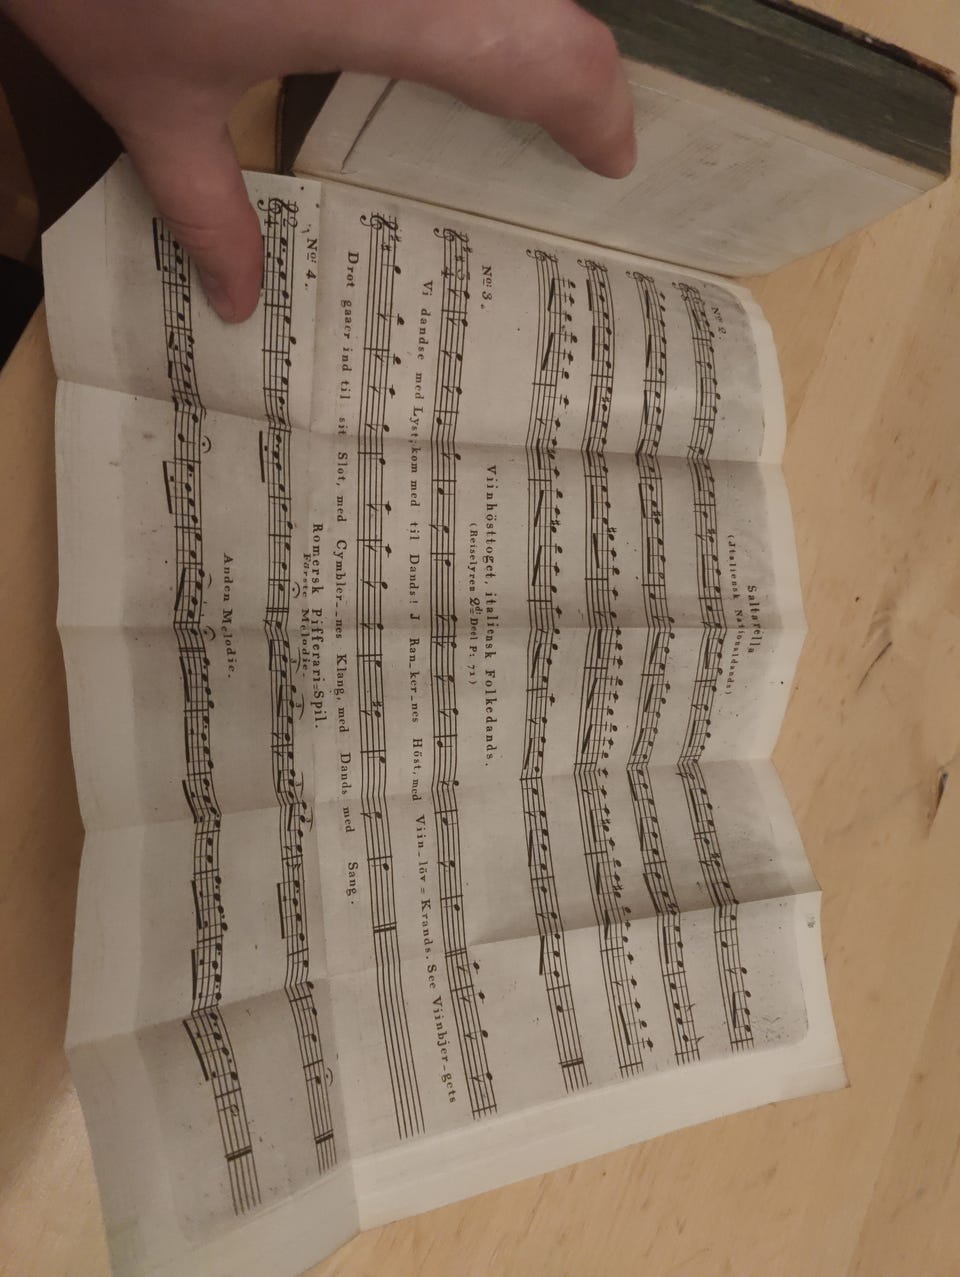 Saltarella
(Italiensk Nationaldands)
No. 2.
Viinhösttoget, italiensk Folkedands.
(Reiselyren 2d: Deel P: 72)
No: 3.
Vi dandse med Lyst, kom med til Dands! J Ran_ker_nes Höst, med Viin_löv = Krands. See Viinbjer_gets
Drot gaaer ind til sit Slot, med Cymbler__nes Klang, med Dands med Sang.
Romersk Pifferari=Spil.
No: 4.
Förste Melodie.
Anden Melodie.